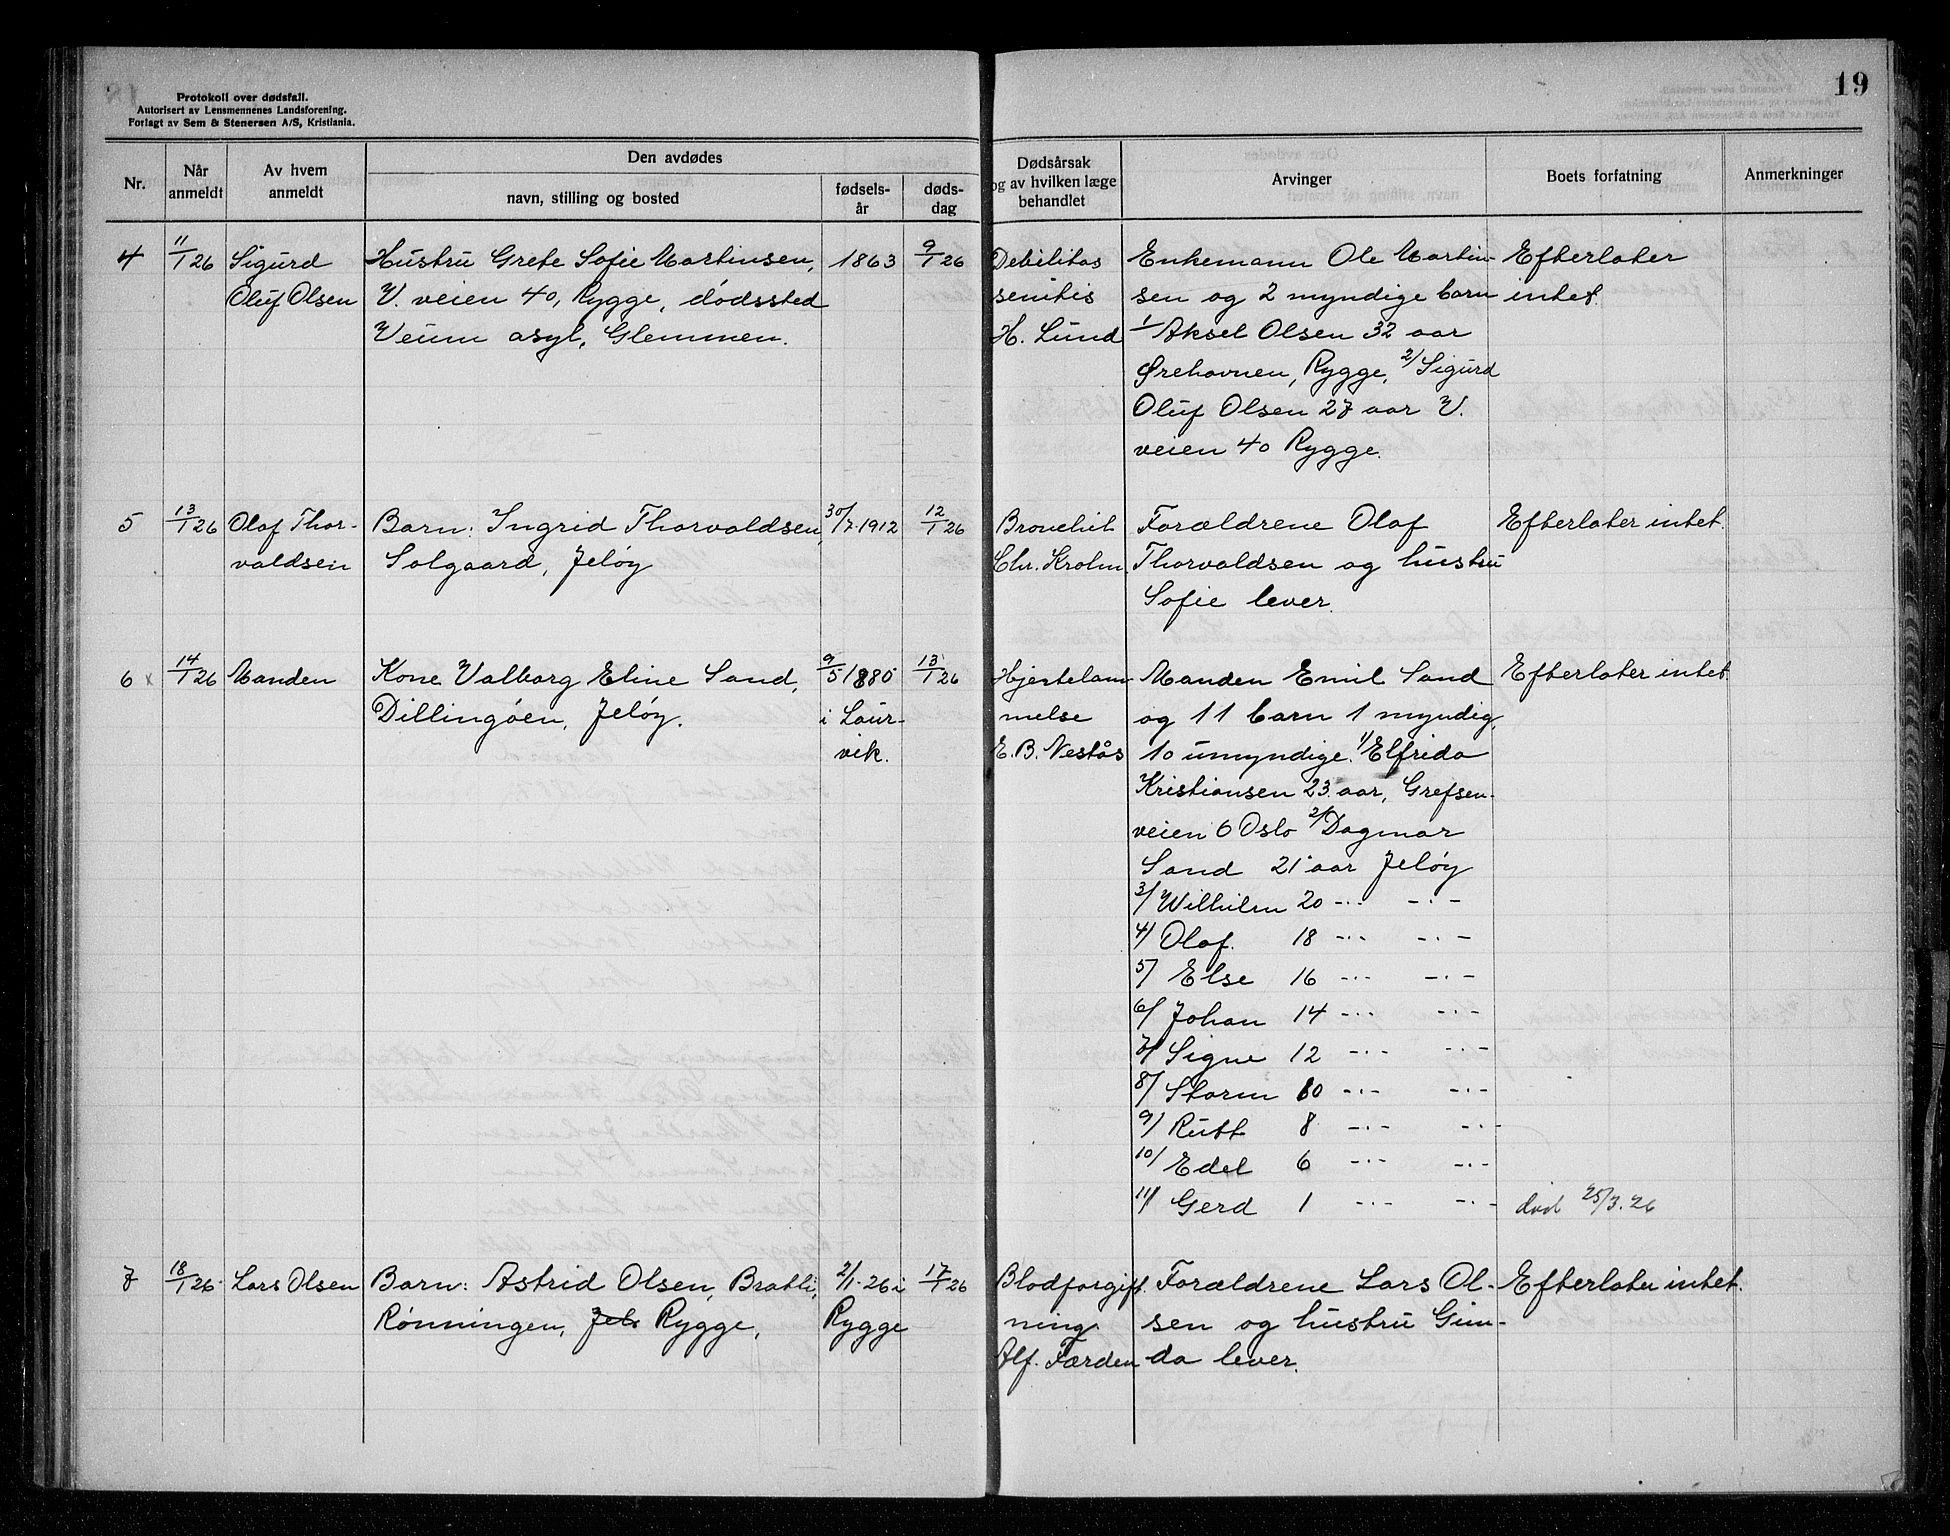 Protokoll over dødsfall.
Autorisert av Lensmennenes Landsforening.
Forlagt av Sem & Stenersen A/S, Kristiania.
19
Nr.
Når anmeldt
Av hvem anmeldt
Den avdødes
navn, stilling og bosted
fødselsår
dødsdag
Dødsårsak og av hvilken læge behandlet
Arvinger
Boets forfatning
Anmerkninger
4 11/1 26 Sigurd Hustru Grete Sofie Martinsen, 1863 9/1 26 Debilitas Enkemann Ole Martin- Efterlater
Oluf Olsen V. veien 40, Rygge, dödssted senitis sen og 2 myndige barn intet.
Veum asyl, Glemmen. H. Lund 1/ Aksel Olsen 32 aar
Ørehavnen, Rygge, 2/ Sigurd
Oluf Olsen 27 aar V.
veien 40 Rygge.
5 13/1 26 Olaf Thor- Barn: Ingrid Thorvaldsen, 30/7 1912 12/1 26 Bronchit Forældrene Olaf Efterlater intet.
valdsen Solgaard, Jelöy Chr. Krohn. Thorvaldsen og hustru
Sofie lever.
6 x 14/1 26 Manden Kone Valborg Eline Sand, 9/5 1880 13/1 26 Hjertelam- Manden Emil Sand Efterlater intet.
Dillingöen, Jelöy. i Laur- melse og 11 barn 1 myndig,
vik. E. B. Nestås 10 umyndige. 1/ Elfrida
Kristiansen 23 aar, Grefsen-
veien 6 Oslo 2/ Dagmar
Sand 21 aar Jelöy
3/ Wilhelm 20 -"- -"-
4/ Olaf. 18 -"- -"-
5/ Else 16 -"- -"-
6/ Johan 14 -"- -"-
7/ Signe 12 -"- -"-
8/ Storm 10 -"- -"-
9/ Rutt 8 -"- -"-
10/ Edel 6 -"- -"-
11/ Gerd 1 -"- -"- död 25/3.26
7 18/1 26 Lars Olsen Barn: Astrid Olsen, Bratli, 2/1. 26 i 17/1 26 Blodforgift- Forældrene Lars Ol- Efterlater intet.
Rönningen, Jel. Rygge, Rygge ning sen og hustru Gun-
Alf. Færden da lever.